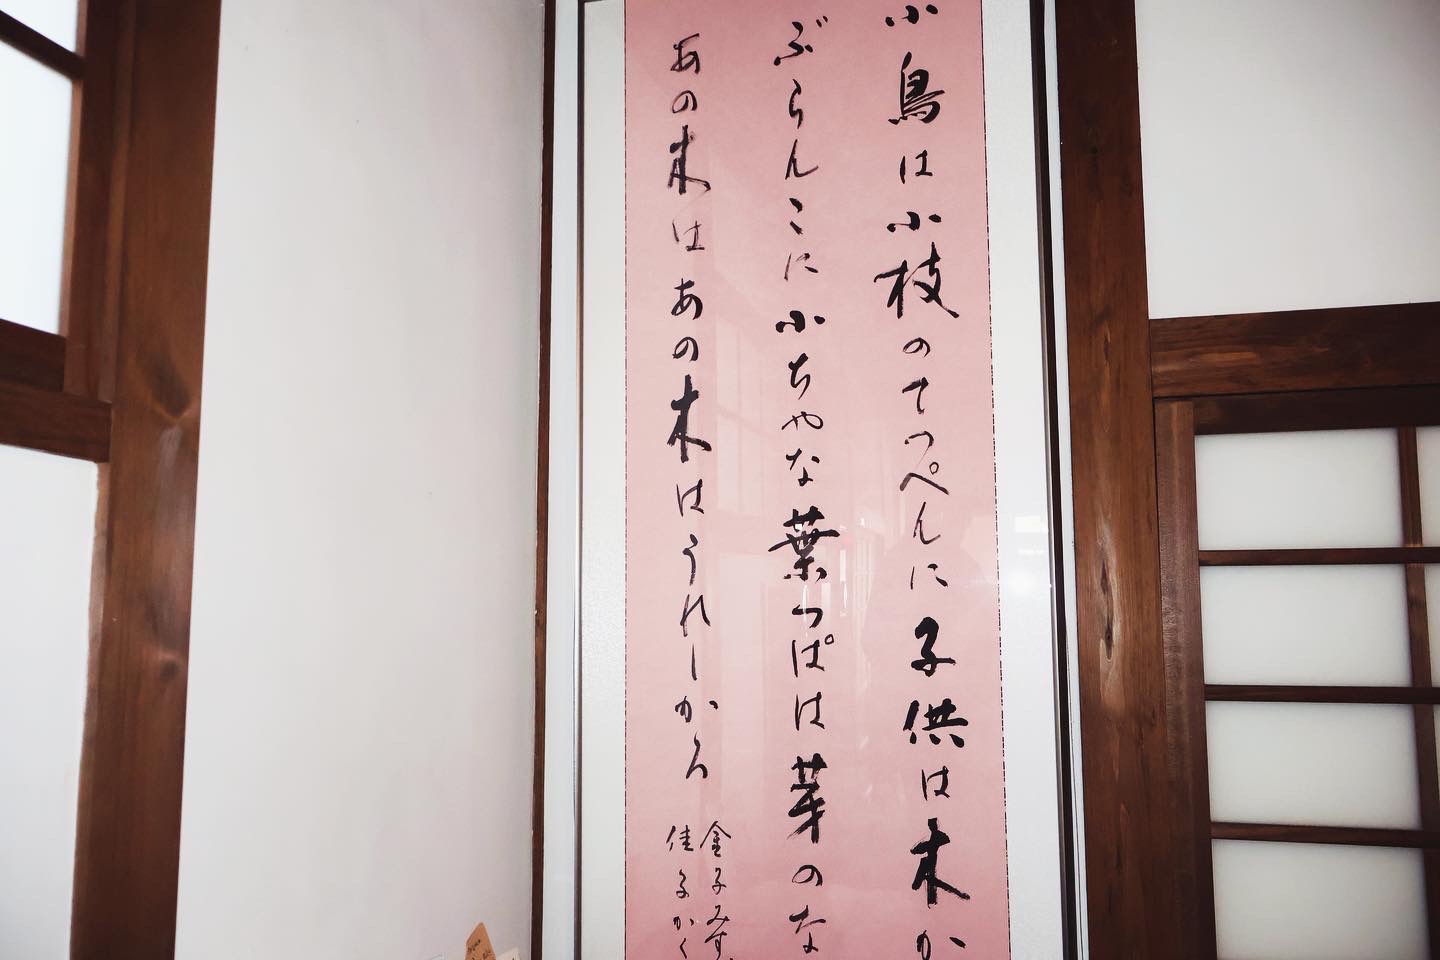 小鳥は小枝のてっぺんに子供は木か
ぶらんこに小ちやな葉っぱは芽のな
あの木はあの木はうれしかろ
金子みす
佳子かく